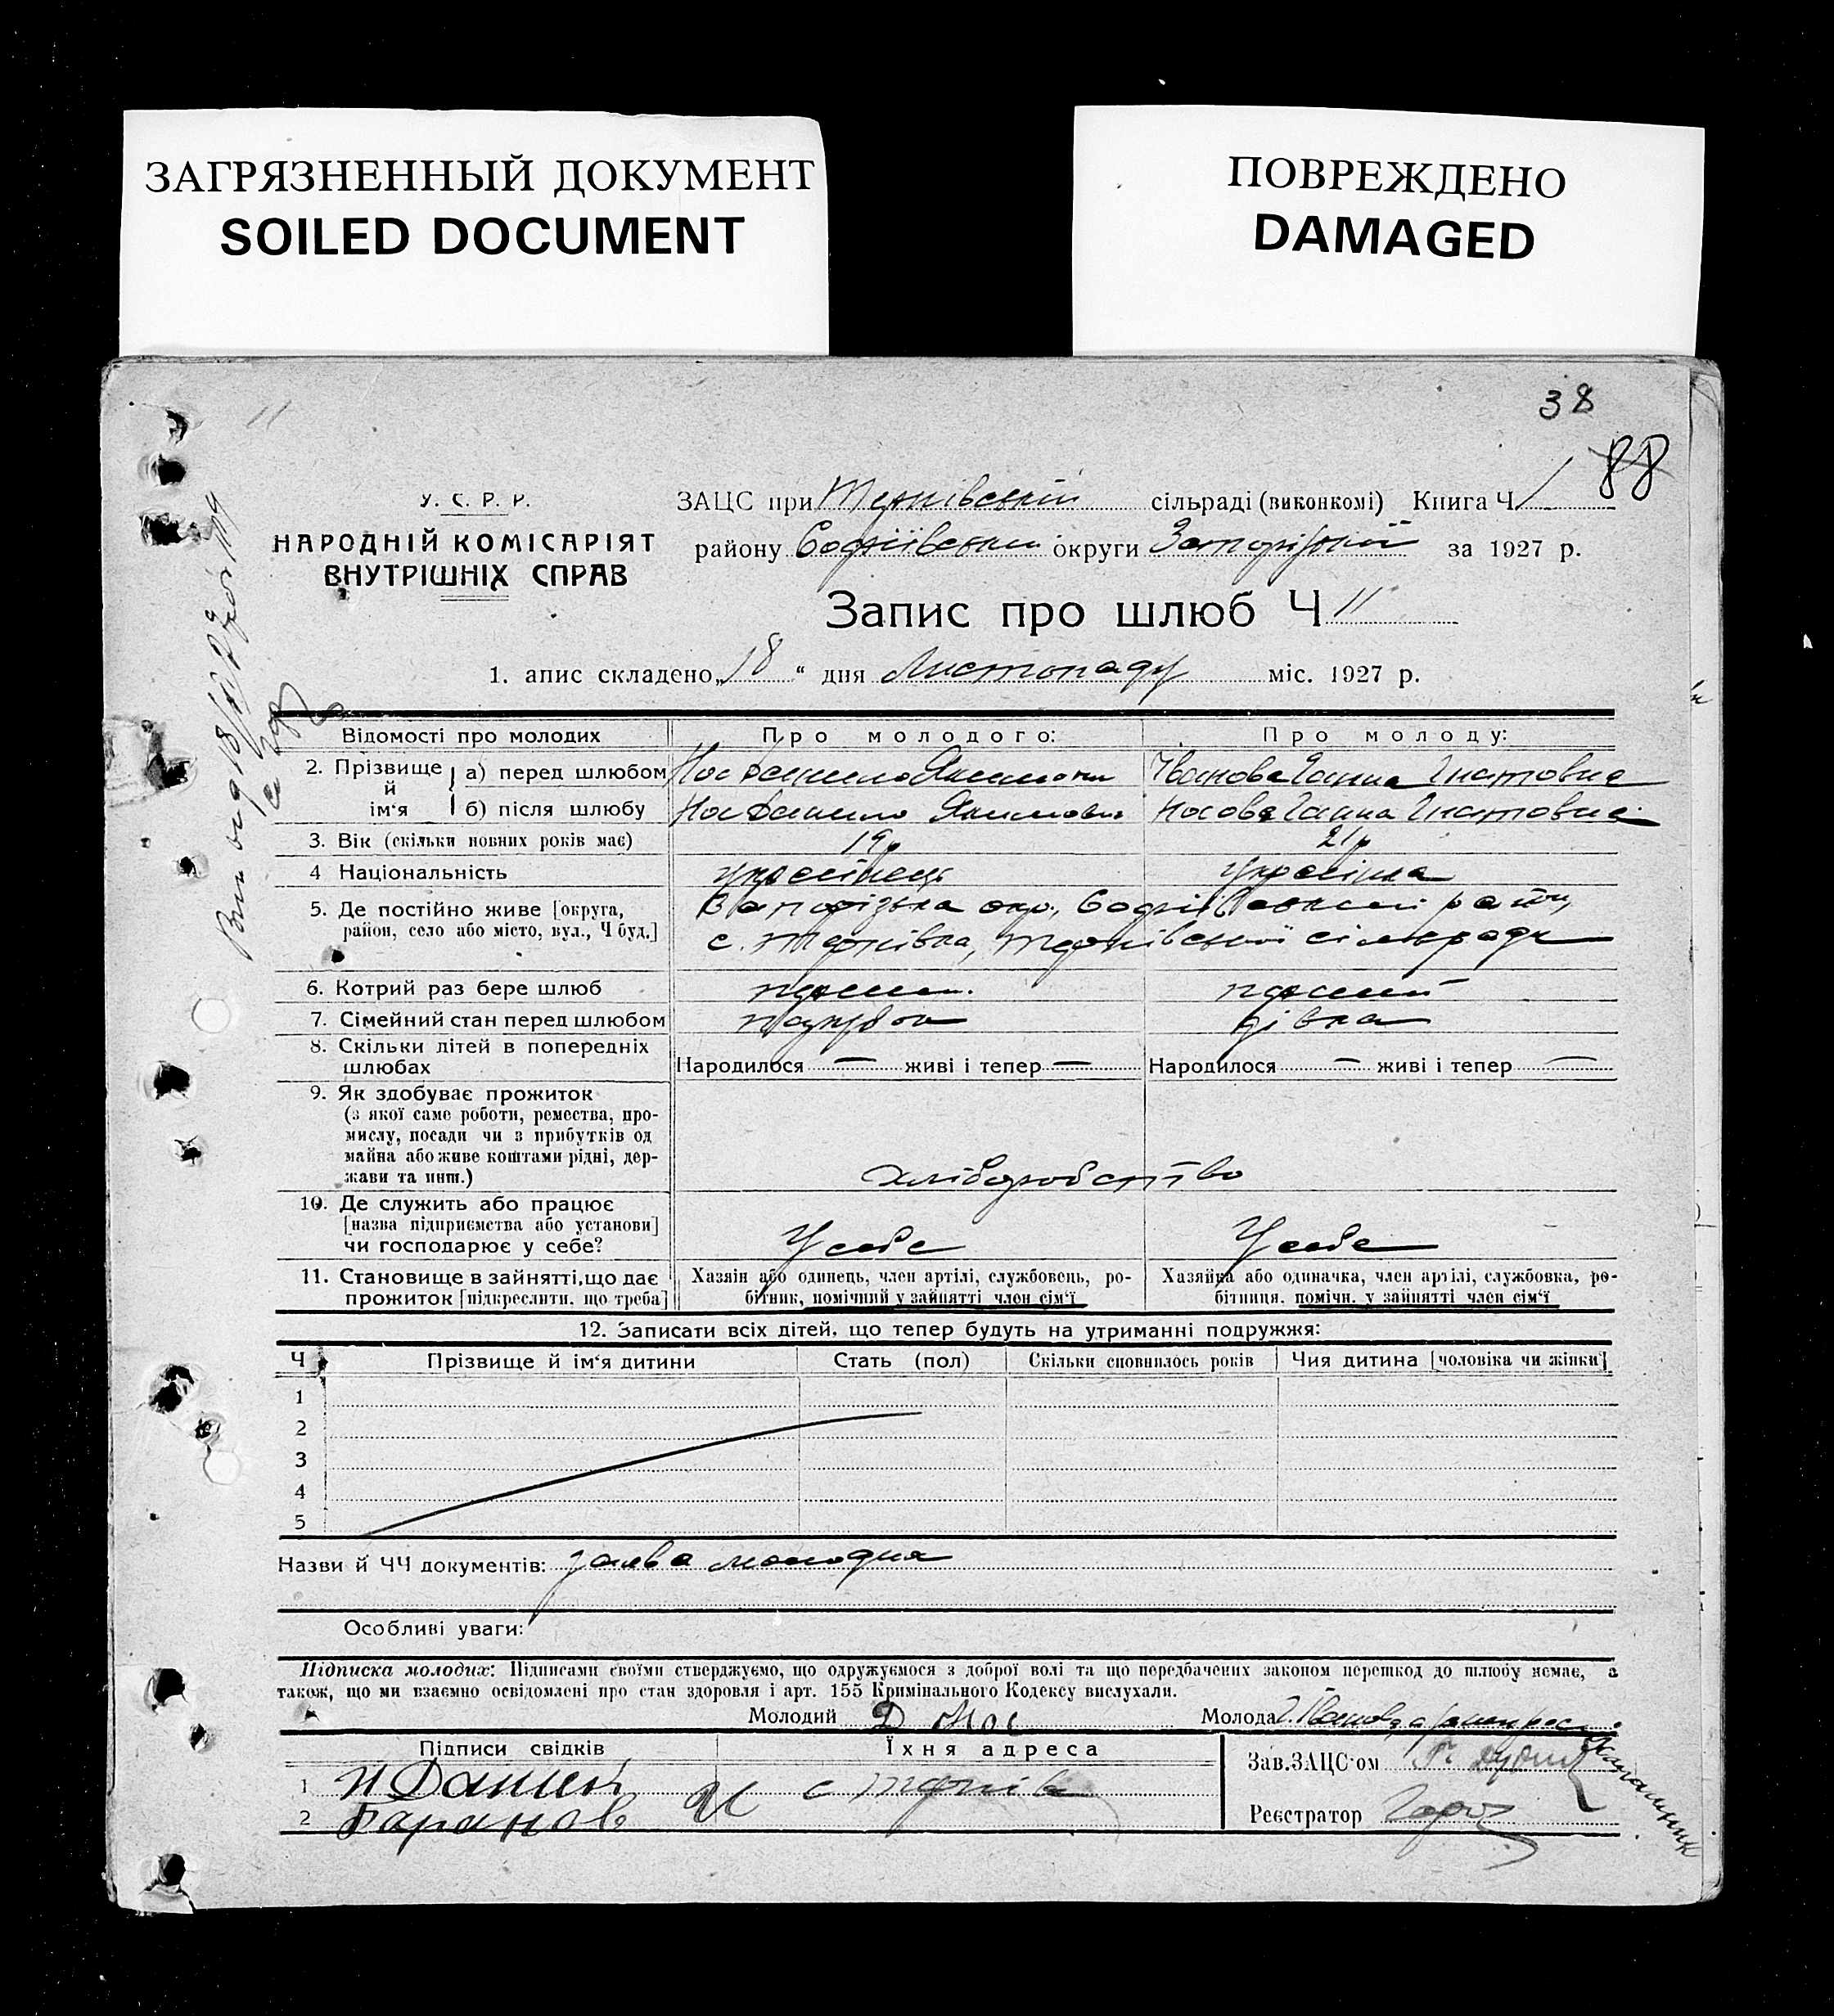 ЗАГРЯЗНЕННЫЙ ДОКУМЕНТ
SOILED DOCUMENT
ПОВРЕЖДЕНО
DAMAGED
38
11
88
У. С. Р. Р.
НАРОДНІЙ КОМІСАРІЯТ
ВНУТРІШНІХ СПРАВ
ЗАЦС при Тернівській сільраді (виконкомі) Книга Ч 1
району Софіївськ округи Запорізької за 1927 р.
Запис про шлюб Ч 11
1. апис складено „18“ дня Листопаду міс. 1927 р.
Відомості про молодих Про молодого: Про молоду:
2. Прізвище й ім'я а) перед шлюбом Нос Данило Якимович Іванова Ганна Гнатовна
б) після шлюбу Нос Данило Якимович Носова Ганна Гнатовна
3. Вік (скільки повних років має) 19р 21р
4 Національність українець українка
5. Де постійно живе [округа, Запорізька окр., Софіївський район,
район, село або місто, вул., Ч буд.] с. Тернівка, Тернівської сільради
6. Котрий раз бере шлюб перший перший
7. Сімейний стан перед шлюбом парубок дівка
8. Скільки дітей в попередніх
шлюбах Народилося — живі і тепер — Народилося — живі і тепер —
9. Як здобуває прожиток
(з якої саме роботи, ремества, про-
мислу, посади чи з прибутків од
майна або живе коштами рідні, дер-
жави та инш.) хліборобство
10. Де служить або працює
[назва підприємства або установи]
чи господарює у себе? У себе У себе
11. Становище в зайнятті, що дає Хазяїн або одинець, член артілі, службовець, ро- Хазяйка або одиначка, член артілі, службовка, ро-
прожиток [підкреслити, що треба] бітник, помічний у зайнятті член сім'ї бітниця, помічн. у зайнятті член сім'ї
12. Записати всіх дітей, що тепер будуть на утриманні подружжя:
Ч Прізвище й ім'я дитини Стать (пол) Скільки сповнилось років Чия дитина [чоловіка чи жінки]
1
2
3
4
5
Назви й ЧЧ документів: заява молодих
Особливі уваги:
Підписка молодих: Підписами своїми стверджуємо, що одружуємося з доброї волі та що передбачених законом перешкод до шлюбу немає, а
також, що ми взаємно освідомлені про стан здоровля і арт. 155 Кримінального Кодексу вислухали.
Молодий Д Нос Молода Г. Іванова
Підписи свідків Їхня адреса Зав.ЗАЦС-ом
1 с Тернівка
2 Баранов Реєстратор